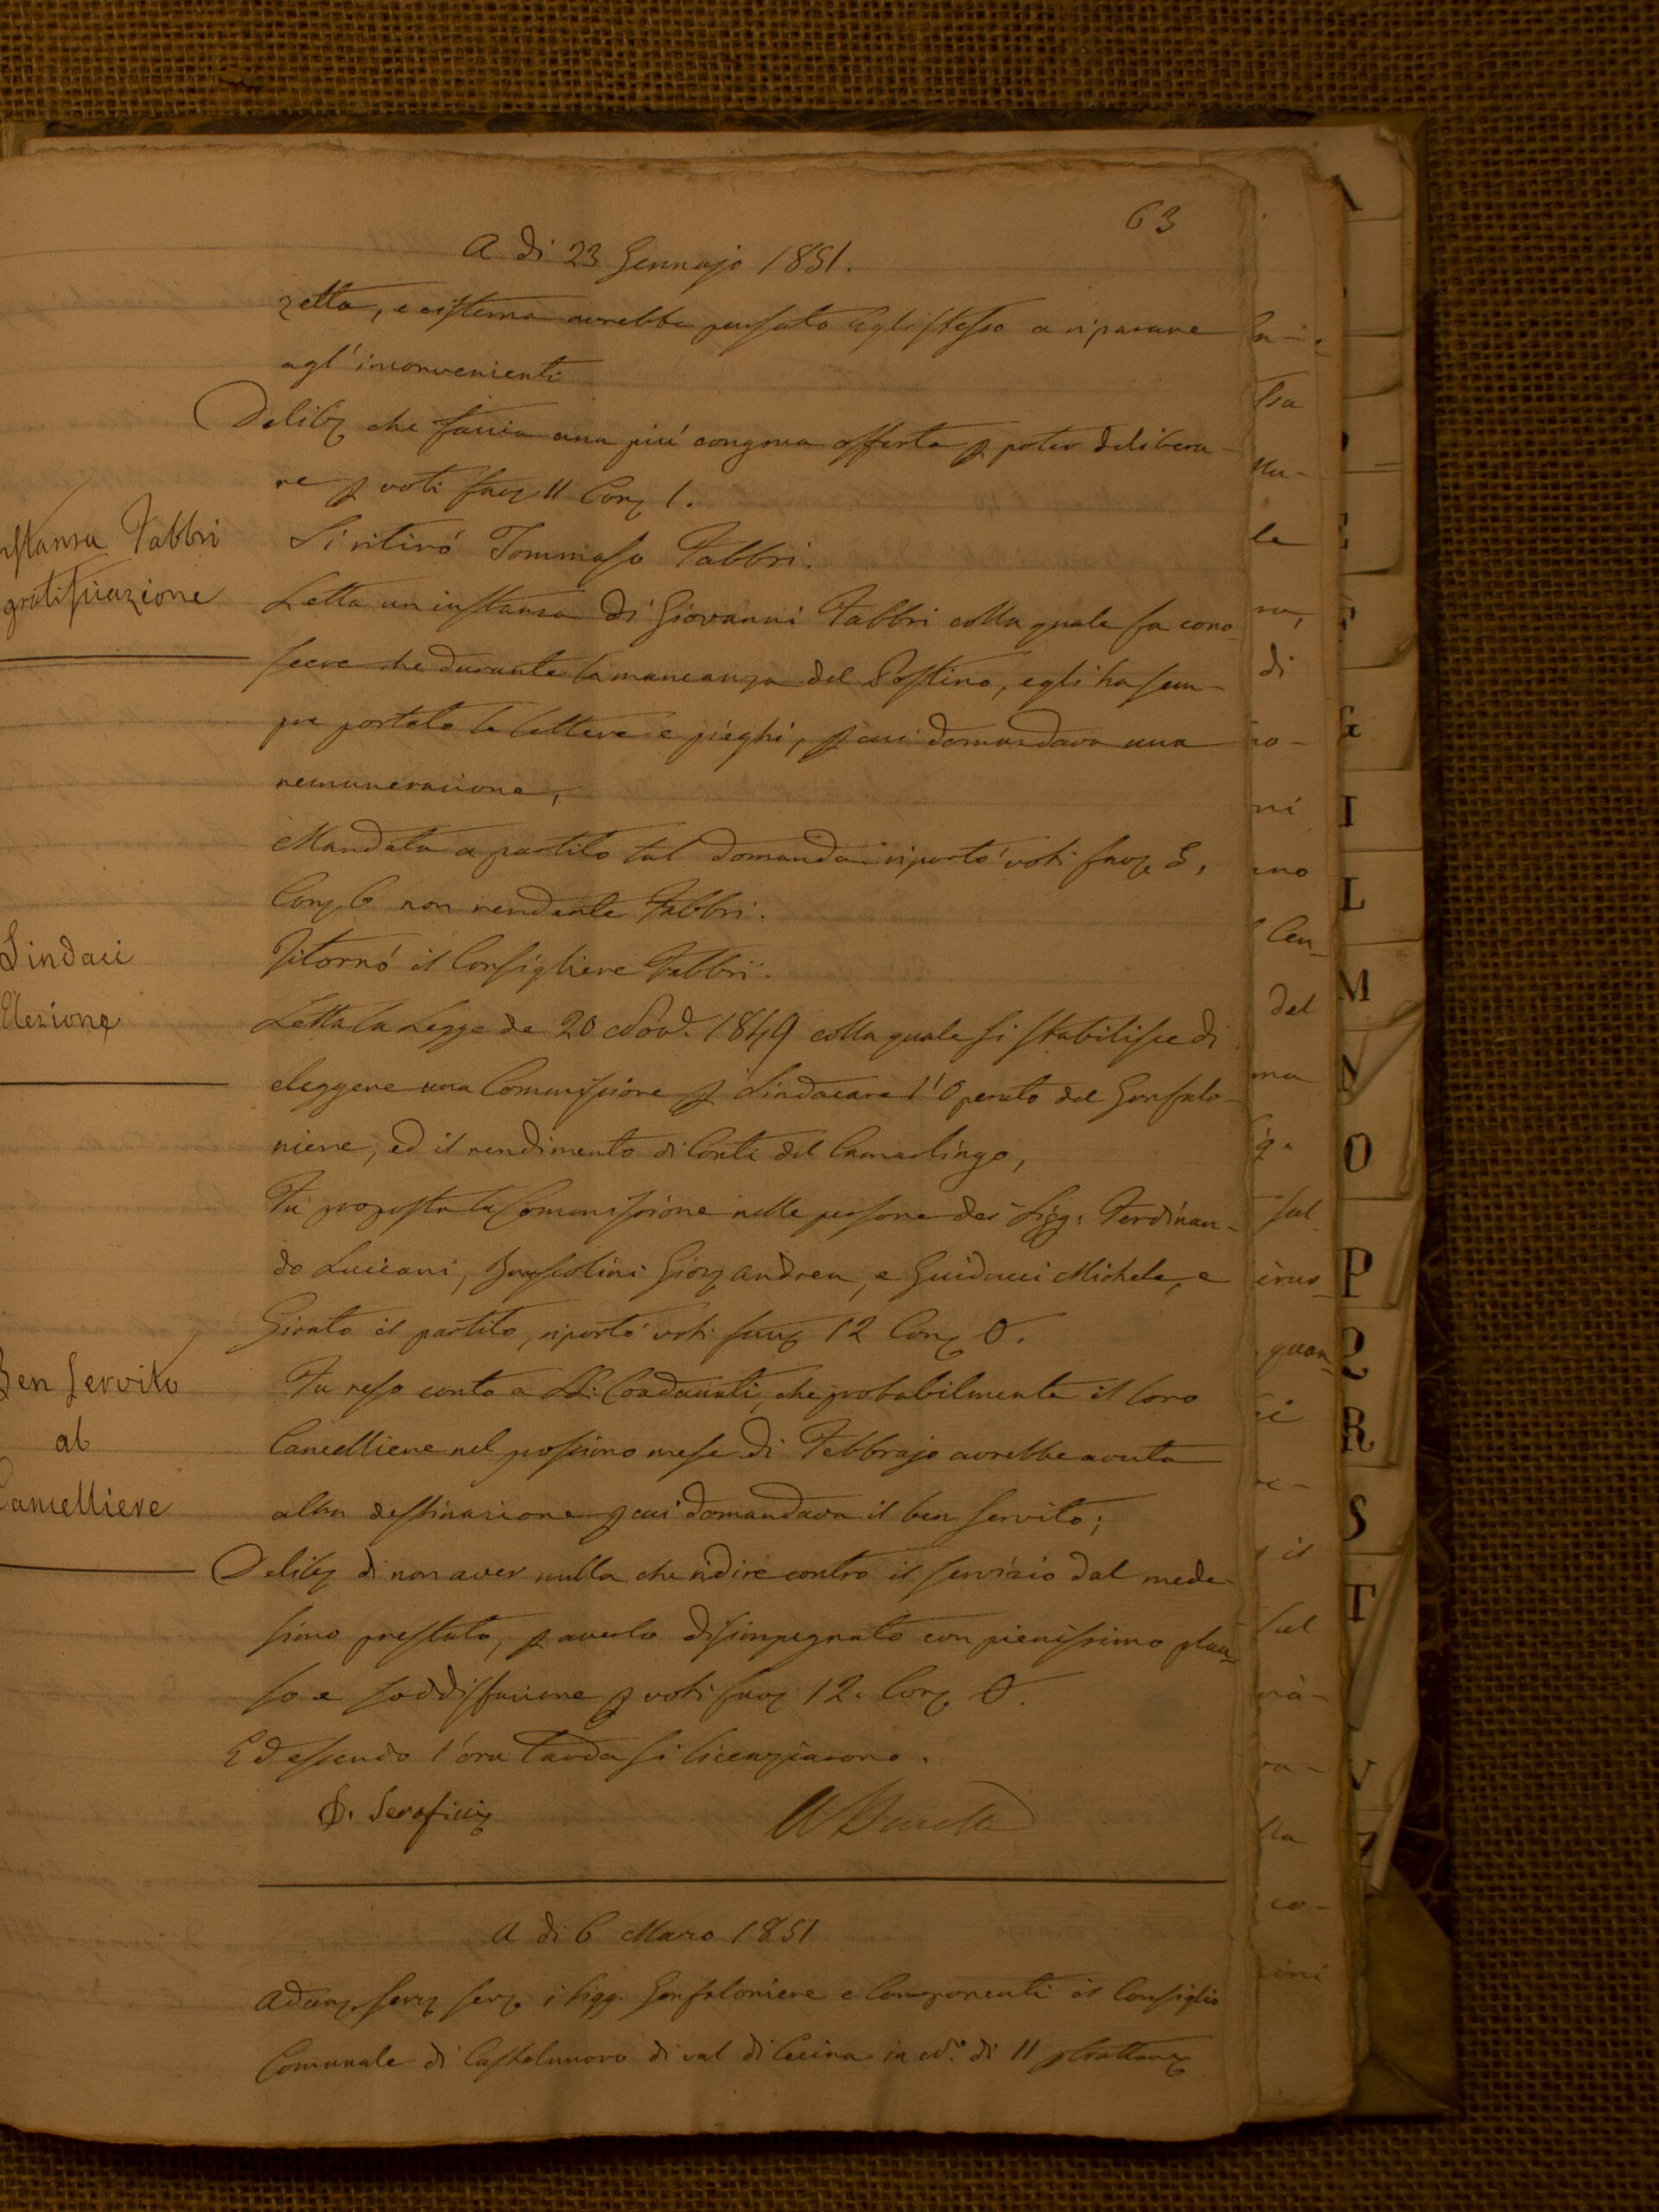 63
A dì 23 Gennajo 1851.
zetta, e cisterna avrebbe pensato Egli stesso a riparare
agl'inconvenienti
Delib che faccia una più congrua offerta p poter delibera-
re p voti fav 11 Con 1.
Si ritirò Tommaso Fabbri.
nstanza Fabbri
gratificazione
Letta un instanza di Giovanni Fabbri colla quale fa cono
scere che durante la mancanza del Postino, egli ha sem-
pre portato le lettere e pieghi, p cui domandava una
remunerazione,
Mandata a partito tal domanda riportò voti fav 5,
Con 6 non rendente Fabbri.
Ritornò il Consigliere Fabbri.
Sindaci
Elezione
Letta la Legge de 20 Nov. 1849 colla quale si stabilisce di
eleggere una Commissione p Sindacare l'Operato del Gonfalo-
niere, ed il rendimento di Conti del Camarlingo,
Fu proposta la Commissione nelle persone dei Sigg: Ferdinan-
do Luciani, Giov Andrea, e Guiducci Michele, e
Girato il partito, riportò voti fav 12 Con 0.
Ben Servito
al
Cancelliere
Fu reso conto a LL: Coadunati, che probabilmente il loro
Cancelliere nel prossimo mese di Febbrajo avrebbe avuta
altra destinazione p cui domandava il ben servito;
Delib di non aver nulla che ridire contro il servizio dal mede-
simo prestato, p averlo disimpegnato con pienissimo plau-
so e soddisfazione p voti fav 12. Con 0.
Ed essendo l'ora tarda si licenziarono.
S. Serafini
A dì 6 Marzo 1851
Adun serv serv i Sigg. Gonfaloniere e Componenti il Consiglio
Comunale di Castelnuovo di val di Cecina in N.º di 11 p trattare